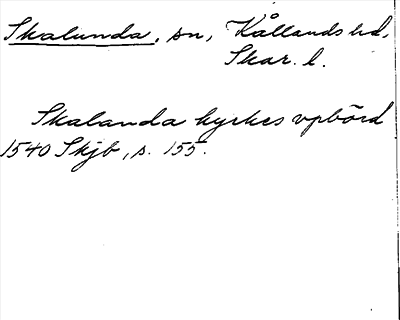 Skalunda, sn, Kållands hd,
Skar. l.
Skalanda kyrkes vpbörd
1540 Skjb, s. 155.